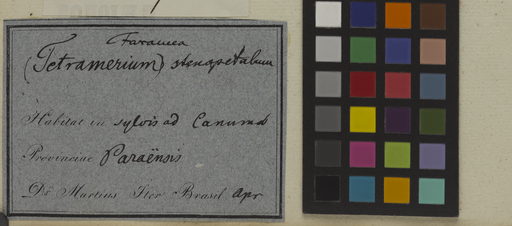 Faramea
(Tetramerium) stenopetalum
Habitat in sylvis ad Canumá
Provinciae Paraënsis
Dr. Martius Iter Brasil. Apr